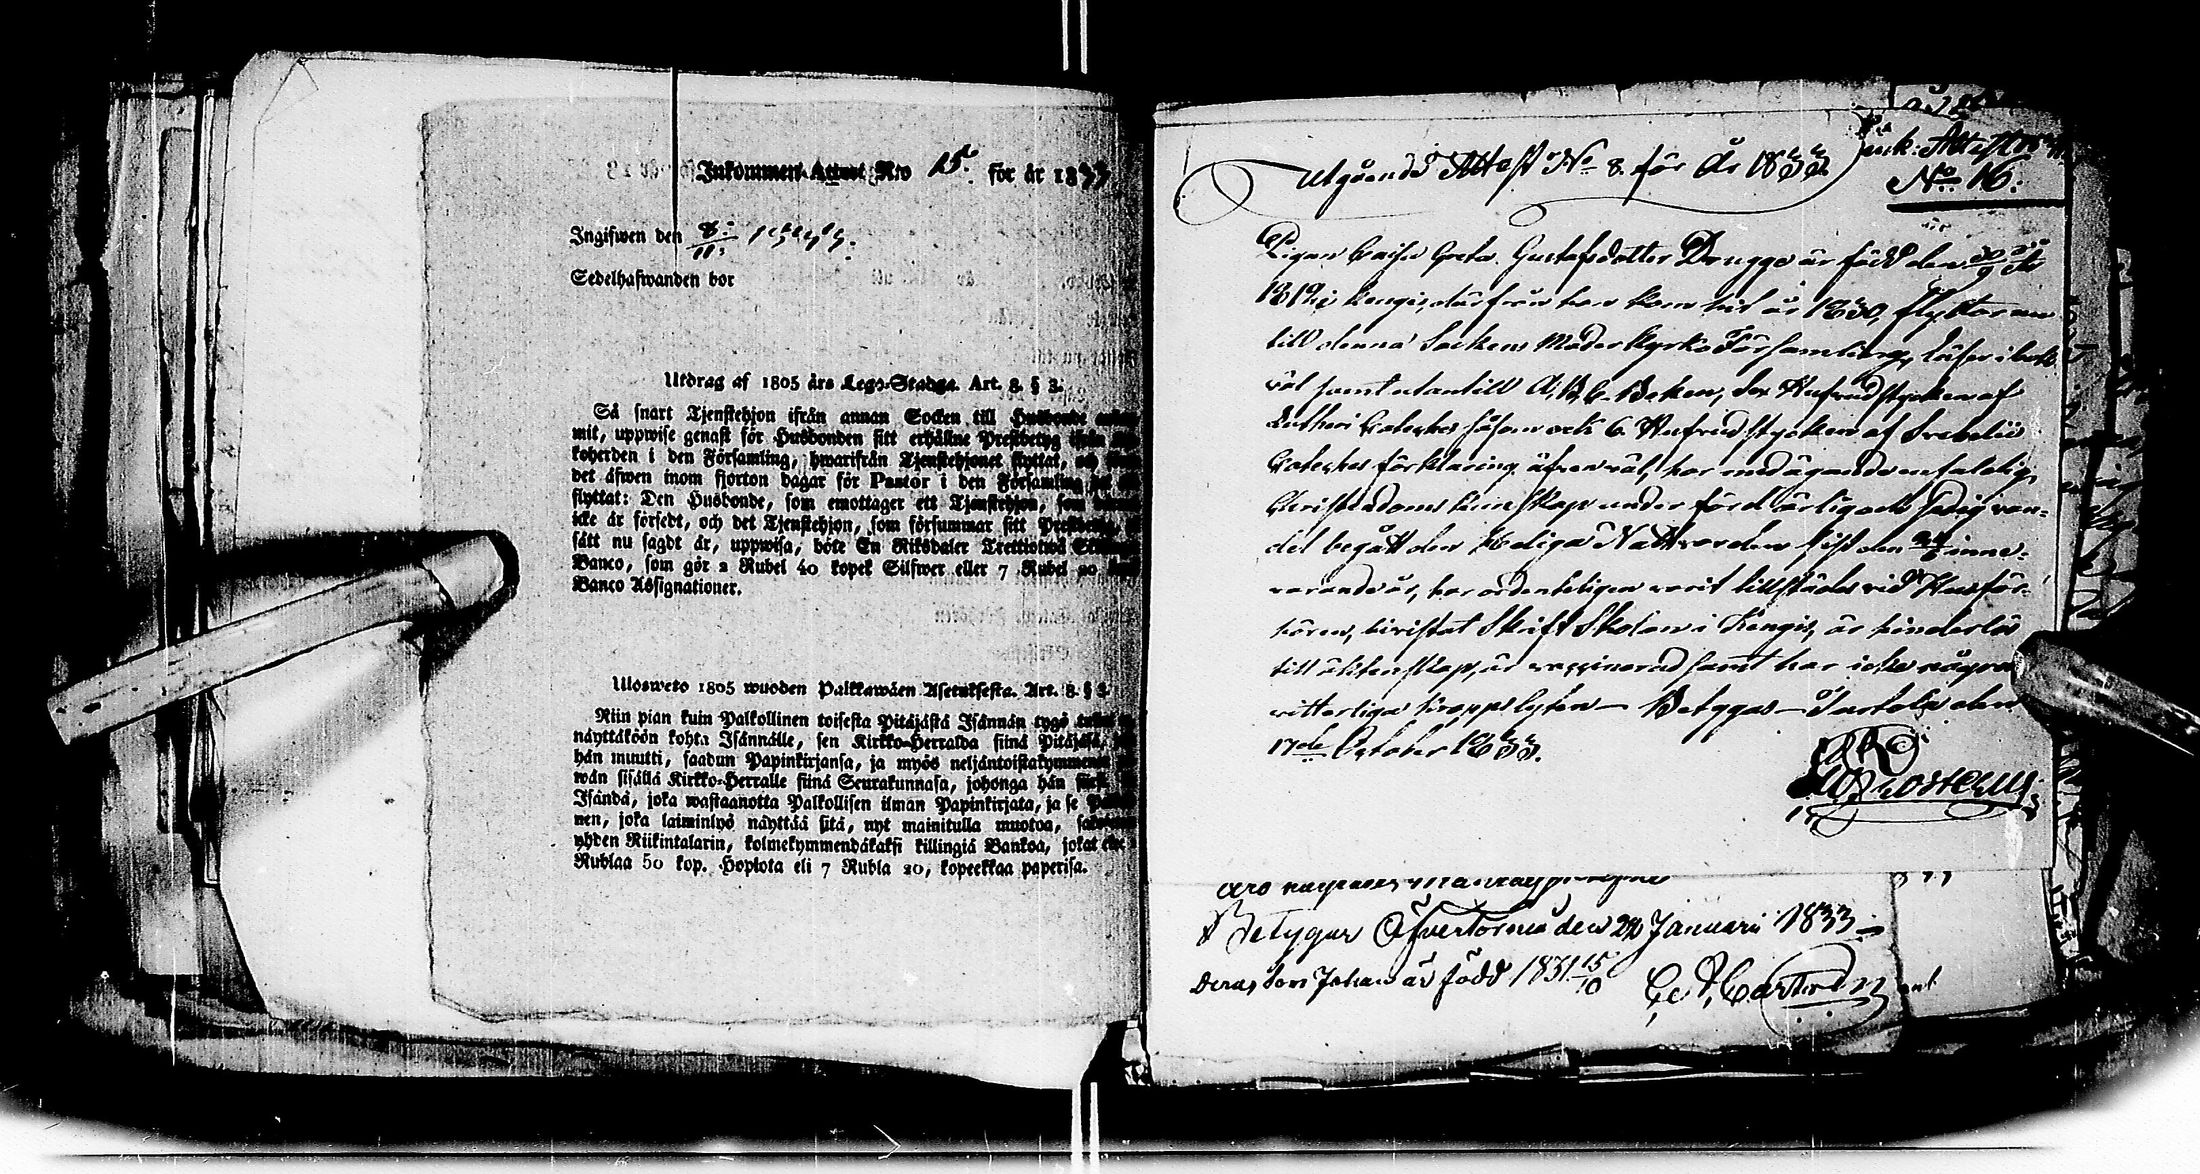 Inkommen Attest N:o 15. för år 1833
Ingifwen den 8/11 1833.
Sedelhafwanden bor
Utdrag af 1805 års Lego-Stadga. Art. 8. § 3.
Så snart Tjenstehjon ifrån annan Socken till Husbonde
mit, uppwise genast för Husbonden sitt erhållne Prestbetyg ifrån
koherden i den Församling, hwarifrån Tjenstehjonet flyttat, och
det äfwen inom fjorton dagar för Pastor i den Församling
flyttat: Den Husbonde, som emottager ett Tjenstehjon, som
icke är försedt, och det Tjenstehjon, som försummar sitt
sätt nu sagdt är, uppwisa, böte En Riksdaler Trettiotwå
Banco, som gör 2 Rubel 40 kopek Silfwer eller 7 Rubel 20
Banco Assignationer.
Ulosweto 1805 wuoden Palkkawäen Asetuksesta. Art. 8 § 3.
Niin pian kuin Palkollinen toisesta Pitäjästä Isännän tygö
näyttäköön kohta Isännälle, sen Kirkko-Herralda siinä Pitäjäsä,
hän muutti, saadun Papinkirjansa, ja myös neljäntoistakymmenen
wän sisällä Kirkko-Herralle siinä Seurakunnasa, johonga hän
Isändä, joka wastaanotta Palkollisen ilman Papinkirjata, ja se
nen, joka laiminlyö näyttää sitä, nyt mainitulla muotoa,
yhden Riikintalarin, kolmekymmendäkaksi killingiä Bankoa, jokat
Rublaa 50 kop. Hopiota eli 7 Rubla 20, kopeekkaa paperisa.
Utgående Attest No 8. för År 1833
Ink: Attest
No 16.
Pigan Caisa Greta Gustafsdotter Drugge är född den
1812 i Kengis, därifrån hon kom hit år 1830, flyttar nu
till denna Sockens Moderkyrko Församling, läser i bok
väl samt utantill A, B, C-Boken, Hufvudstycken af
Lutheri Cateches såsom och 6. Hufvudstycken af Svebelii
Cateches förklaring äfven väl, har med ägande enfaldig
Christendoms kunskap under förd ärlig och sedig van-
del begått den Heliga Nattvarden sist den inne-
varande år, har ordenteligen varit tillstädes vid Husför-
hören, bivistat Skrift Skolan i Kengis, är hinderlös
till äktenskap, är vaccinerad samt har icke några
vitterliga kroppslyten - Betygas - den
17de October 1833.
Betygar Öfvertorneå den 22 Januari 1833 -
Deras Son Johan är född 1831 15/10